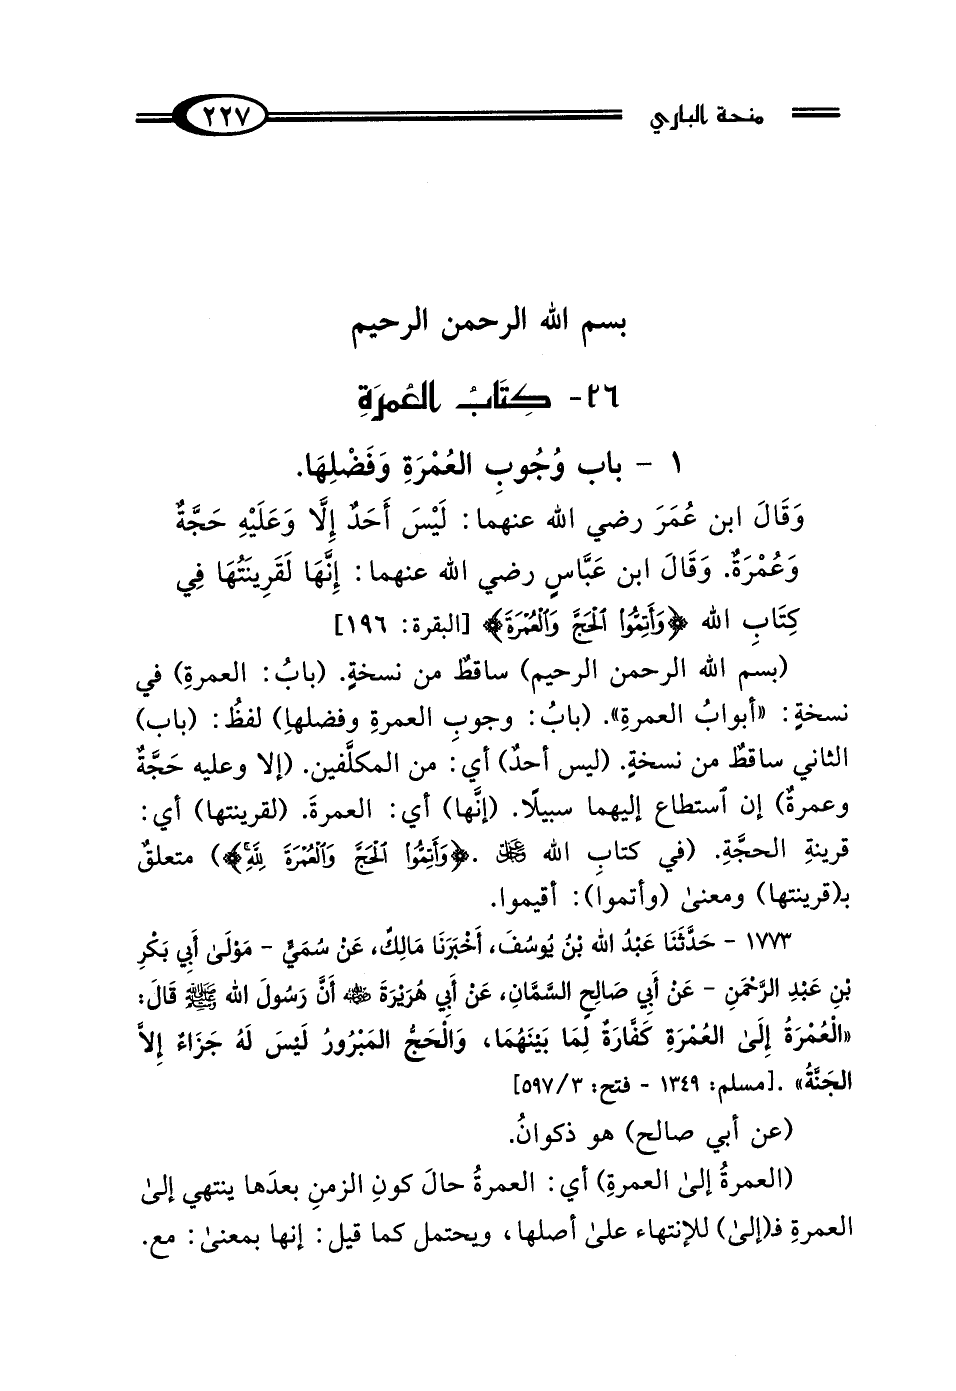 منحة الباري ٢٢٧
بسم الله الرحمن الرحيم
٢٦- كِتَابُ العُمرَةِ
١ - باب وُجُوبِ العُمْرَةِ وَفَضْلِهَا.
وَقَالَ ابن عُمَرَ رضي الله عنهما: لَيْسَ أَحَدٌ إِلَّا وَعَلَيْهِ حَجَّةٌ
وَعُمْرَةٌ. وَقَالَ ابن عَبَّاسٍ رضي الله عنهما: إِنَّهَا لَقَرِينَتُهَا فِي
كِتَابِ الله ﴿وَأَتِمُّوا۟ ٱلْحَجَّ وَٱلْعُمْرَةَ﴾ [البقرة: ١٩٦]
(بسم الله الرحمن الرحيم) ساقطٌ من نسخةٍ. (بابُ: العمرةِ) في
نسخةٍ: «أبوابُ العمرةِ». (بابُ: وجوبِ العمرةِ وفضلها) لفظُ: (باب)
الثاني ساقطٌ من نسخةٍ. (ليس أحدٌ) أي: من المكلَّفين. (إلا وعليه حَجَّةٌ
وعمرةٌ) إن ٱستطاع إليهما سبيلًا. (إنَّها) أي: العمرةَ. (لقرينتها) أي:
قرينةِ الحجَّةِ. (في كتابِ الله ﷿ .﴿وَأَتِمُّوا۟ ٱلْحَجَّ وَٱلْعُمْرَةَ لِلَّهِۚ﴾) متعلقٌ
بـ(قرينتها) ومعنىٰ (وأتموا): أقيموا.
١٧٧٣ - حَدَّثَنَا عَبْدُ الله بْنُ يُوسُفَ، أَخْبَرَنَا مَالِكٌ، عَنْ سُمَيٍّ - مَوْلَىٰ أَبِي بَكْرِ
بْنِ عَبْدِ الرَّحْمَنِ - عَنْ أَبِي صَالِحٍ السَّمَّانِ، عَنْ أَبِي هُرَيْرَةَ ﵁ أَنَّ رَسُولَ الله ﷺ قَالَ:
«الْعُمْرَةُ إِلَىٰ العُمْرَةِ كَفَّارَةٌ لِمَا بَيْنَهُمَا، وَالْحَجُّ المَبْرُورُ لَيْسَ لَهُ جَزَاءٌ إِلاَّ
الجَنَّةُ» .[مسلم: ١٣٤٩ - فتح: ٣/ ٥٩٧]
(عن أبي صالح) هو ذكوانُ.
(العمرةُ إلىٰ العمرةِ) أي: العمرةُ حالَ كونِ الزمنِ بعدَها ينتهي إلىٰ
العمرةِ فـ(إلىٰ) للإنتهاء علىٰ أصلها، ويحتمل كما قيل: إنها بمعنىٰ: مع.